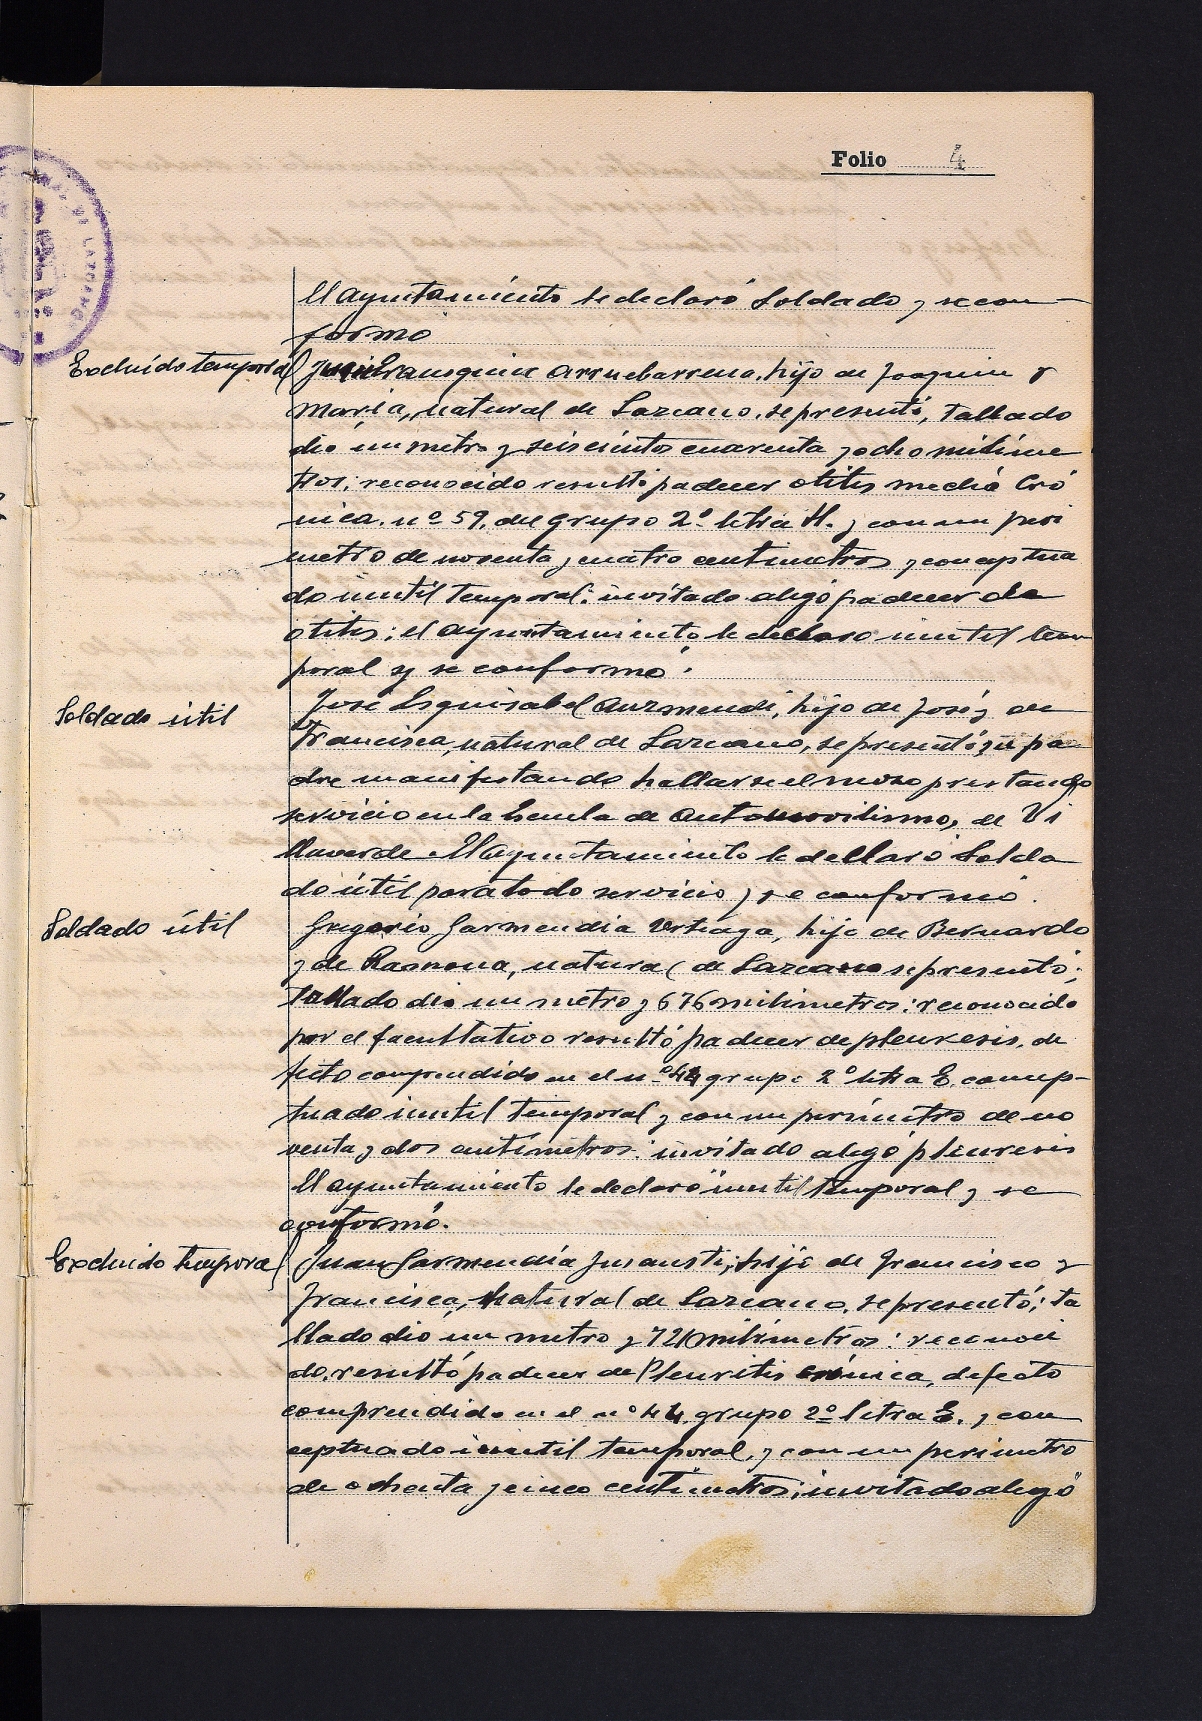 Folio 4
El ayuntamiento le declaró Soldado y se con
formó
Excluido temporal
Eransquin Arruebarrena, hijo de Joaquin y
Maria, natural de Lazcano, se presentó, tallado
dió un metro y seiscientos cuarenta y ocho milime
tros; reconocido resultó padecer otitis media Cró
nica, nº 59, del grupo 2º letra H. y con un peri
metro de noventa y cuatro centimetros y conceptua
do inutil temporal: invitado alegó padecer de
otitis; el ayuntamiento le declaro inutil tem
poral y se conformó.
Soldado útil
José Esquisabel Aurmendi, hijo de José y de
Francisca, natural de Lazcano, se presentó su pa
dre manifestando hallarse el mozo prestando
servicio en la Escuela de Automovilismo, de Vi
llaverde. El ayuntamiento le declaró Solda
do útil para todo servicio y se conformó.
Soldado útil
Gregorio Garmendia Urteaga, hijo de Bernardo
y de Ramona, natural de Lazcano se presentó;
tallado dio un metro y 676 milimetros: reconocido
por el facultativo resultó padecer de pleuresis, de
fecto comprendido en el nº 44 grupo 2º letra E. concep-
tuado inutil temporal y con un perímetro de no
venta y dos centímetros: invitado alegó pleuresis
El ayuntamiento le declaró inutil temporal y se
conformó.
Excluido temporal
Juan Garmendia Jusausti, hijo de Francisco y
Francisca, natural de Lazcano, se presentó; ta
llado dio un metro y 720 milímetros: reconoci
do, resultó padecer de Pleuritis crónica, defecto
comprendido en el nº 44, grupo 2º letra E. y con
ceptuado inutil temporal, y con un perimetro
de ochenta y cinco centimetros; invitado alegó